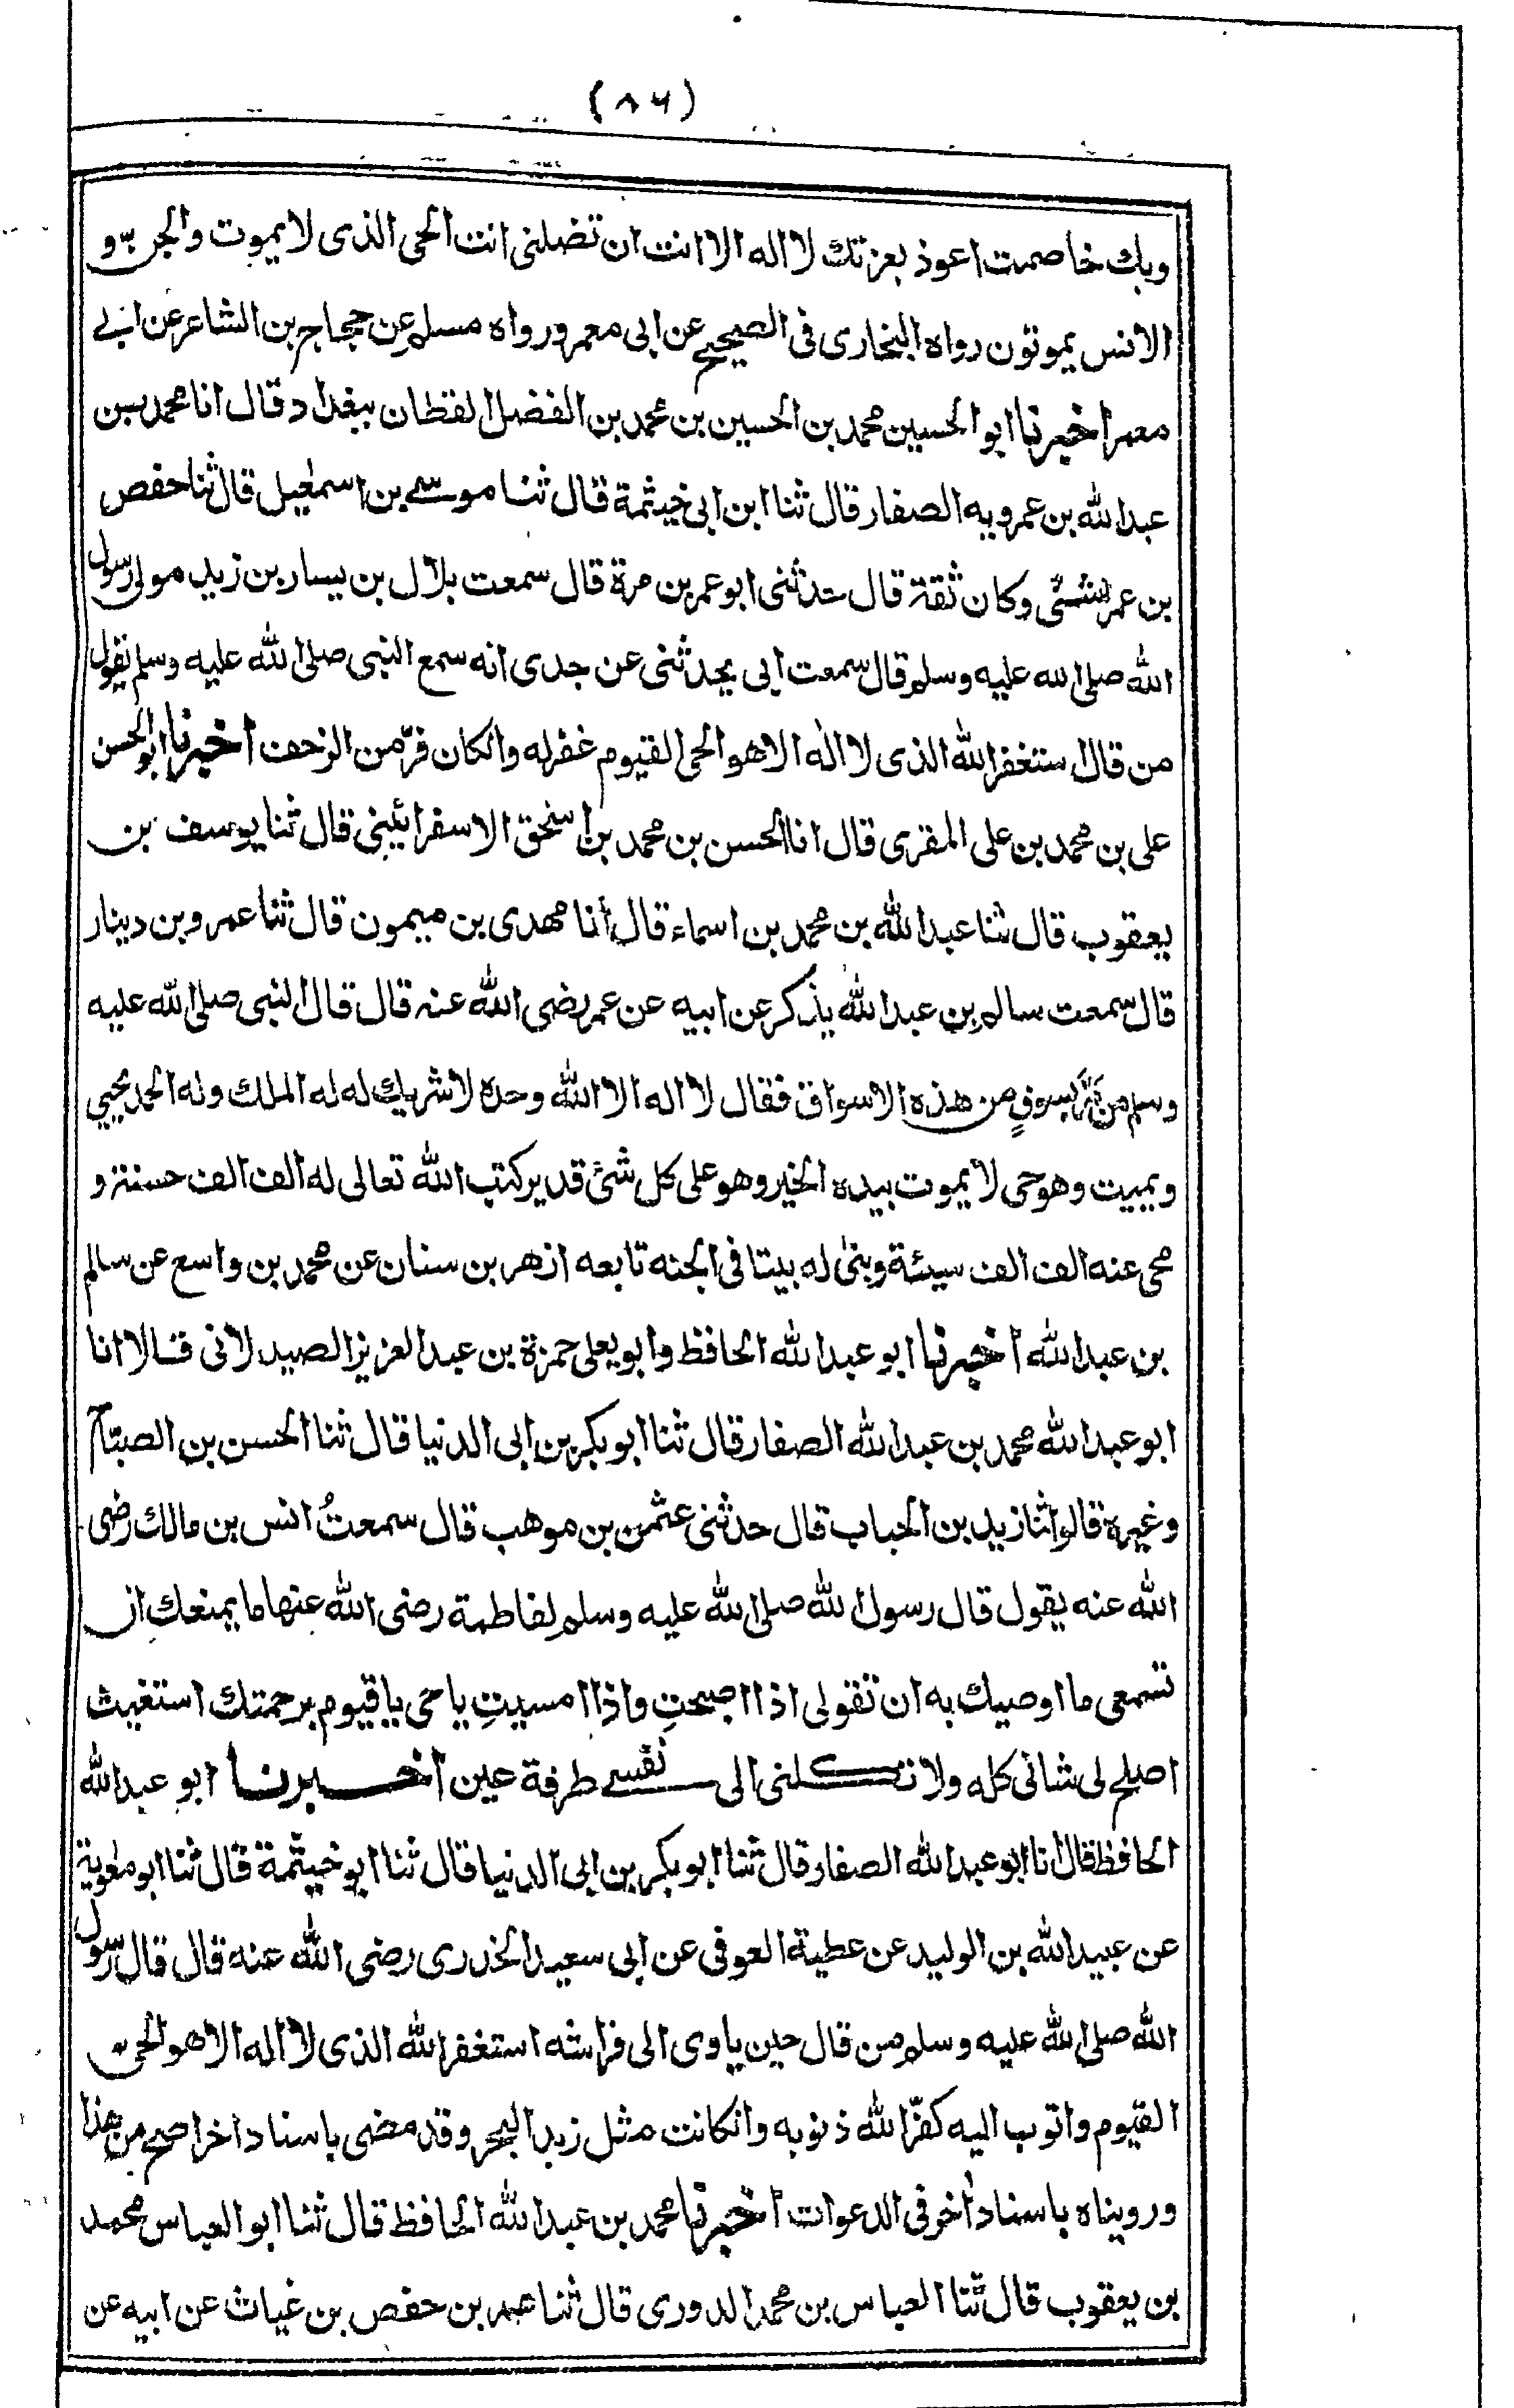 (٨٦)
وبك خاصمت اعوذ بعزتك لا اله الا انت ان تضلنى انت الحى الذى لا يموت والجن و
الانس يموتون رواه البخارى فى الصحيح عن ابى معمر ورواه مسلم عن حجاج بن الشاعر عن ابى
معمر اخبرنا ابو الحسين محمد بن الحسين بن محمد بن الفضل القطان ببغداد قال انا محمد بن
عبد الله بن عمرويه الصفار قال ثنا ابن ابى خيثمة قال ثنا موسى بن اسمعيل قال ثنا حفص
بن عمر الشنى وكان ثقة قال حدثنى ابو عمر بن مرة قال سمعت بلال بن يسار بن زيد مولى رسول
الله صلى الله عليه وسلم قال سمعت ابى يحدثنى عن جدى انه سمع النبى صلى الله عليه وسلم يقول
من قال استغفر الله الذى لا اله الا هو الحى القيوم غفر له وانكان فرّ من الزحف اخبرنا ابو الحسن
على بن محمد بن على المقرى قال انا الحسن بن محمد بن اسحق الاسفرائينى قال ثنا يوسف بن
يعقوب قال ثنا عبد الله بن محمد بن اسماء قال أنا مهدى بن ميمون قال ثنا عمرو بن دينار
قال سمعت سالم بن عبد الله يذكر عن ابيه عن عمر رضى الله عنه قال قال النبى صلى الله عليه
وسلم من مَرَّ بسوقٍ من هذه الاسواق فقال لا اله الا الله وحده لا شريك له له الملك وله الحمد يحيى
ويميت وهو حى لا يموت بيده الخير وهو على كل شئ قدير كتب الله تعالى له الف الف حسنة و
محى عنه الف الف سيئة وبنى له بيتا فى الجنه تابعه ازهر بن سنان عن محمد بن واسع عن سالم
بن عبد الله أخبرنا ابو عبد الله الحافظ وابو يعلى حمزة بن عبد العزيز الصيدلانى قالا انا
ابو عبد الله محمد بن عبد الله الصفار قال ثنا ابو بكر بن ابى الدنيا قال ثنا الحسن بن الصبّاح
وغيره قالوا ثنا زيد بن الحباب قال حدثنى عثمن بن موهب قال سمعتُ انس بن مالك رضى
الله عنه يقول قال رسول الله صلى الله عليه وسلم لفاطمة رضى الله عنها ما يمنعك ان
تسمعى ما اوصيك به ان تقولى اذا اصبحتِ واذا امسيتِ يا حى يا قيوم برحمتك استغيث
اصلح لى شانى كله ولا تكلنى الى نفسى طرفة عين أخبرنا ابو عبد الله
الحافظ قال انا ابو عبد الله الصفار قال ثنا ابو بكر بن ابى الدنيا قال ثنا ابو خيثمة قال ثنا ابو معٰوية
عن عبيد الله بن الوليد عن عطية العوفى عن ابى سعيد الخدرى رضى الله عنه قال قال رسول
الله صلى الله عليه وسلم من قال حين ياوى الى فراشه استغفر الله الذى لا اله الا هو الحى
القيوم واتوب اليه كفّر الله ذنوبه وانكانت مثل زبد البحر وقد مضى باسناد اخر اصح من هذا
ورويناه باسناد اخر فى الدعوات أخبرنا محمد بن عبد الله الحافظ قال ثنا ابو العباس محمد
بن يعقوب قال ثنا العباس بن محمد الدورى قال ثنا عمر بن حفص بن غياث عن ابيه عن